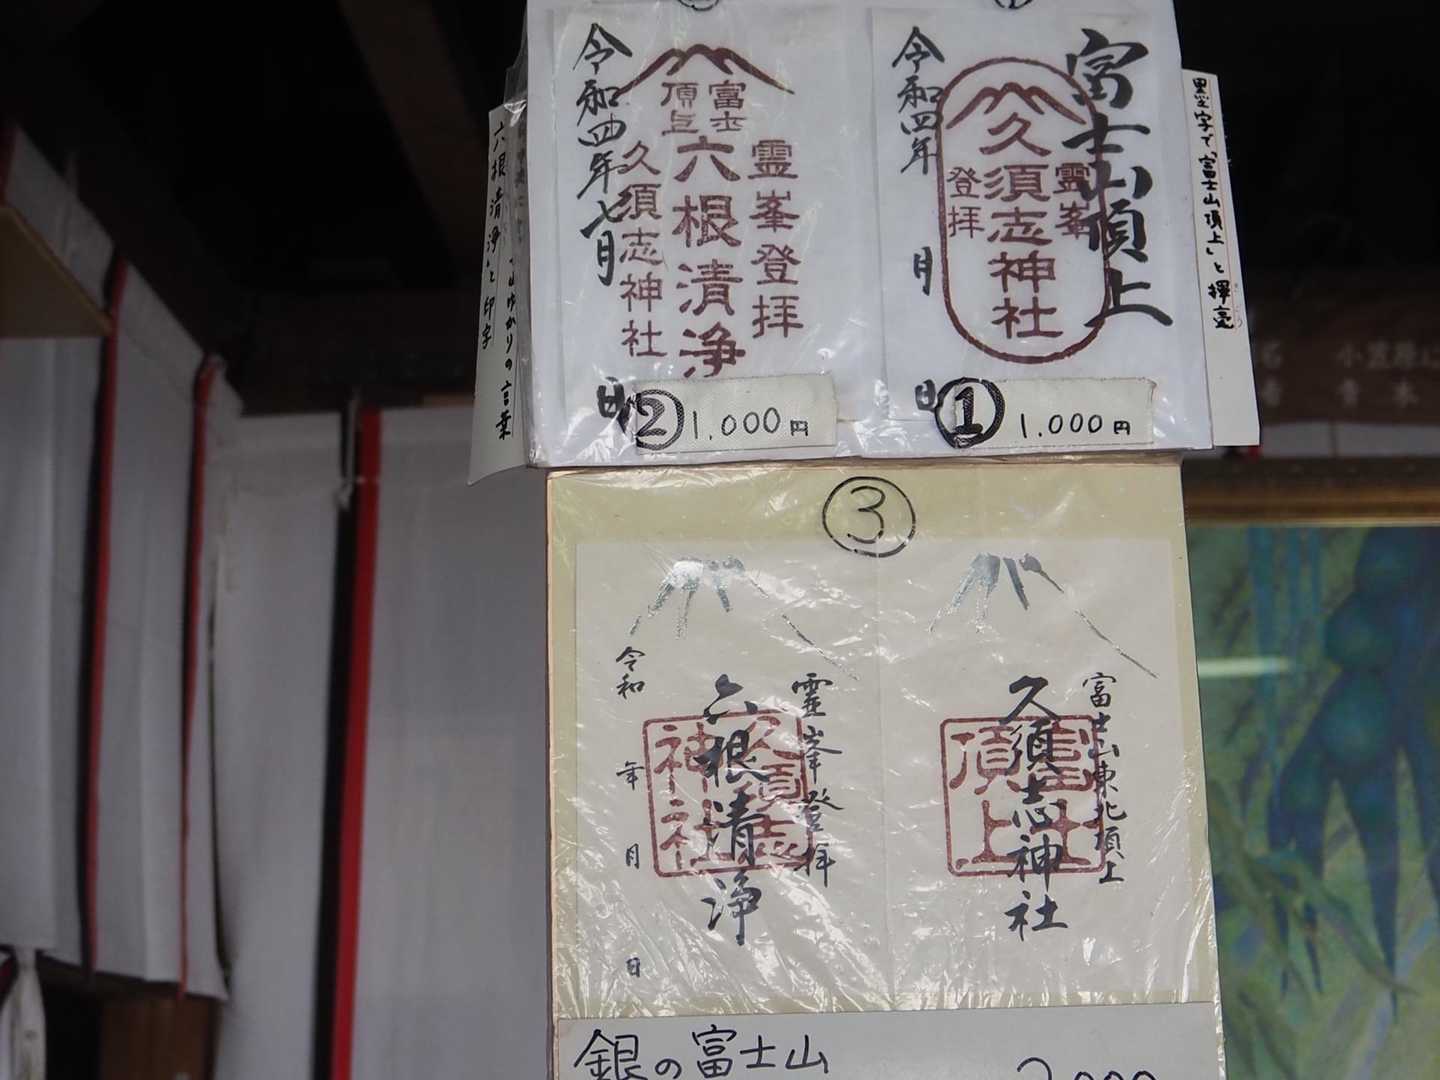 墨字で「富士山頂上」と揮毫
富士山頂上
霊峯
久須志神社
登拝
令和四年 月 日
① 1,000円
霊峯登拝
富士頂上
六根清浄
久須志神社
令和四年七月 日
② 1,000円
ゆかりの言葉
六根清浄と印字
③
富士山東北頂上
久須志神社
霊峯登拝
六根清浄
久須志神社
令和 年 月 日
銀の富士山